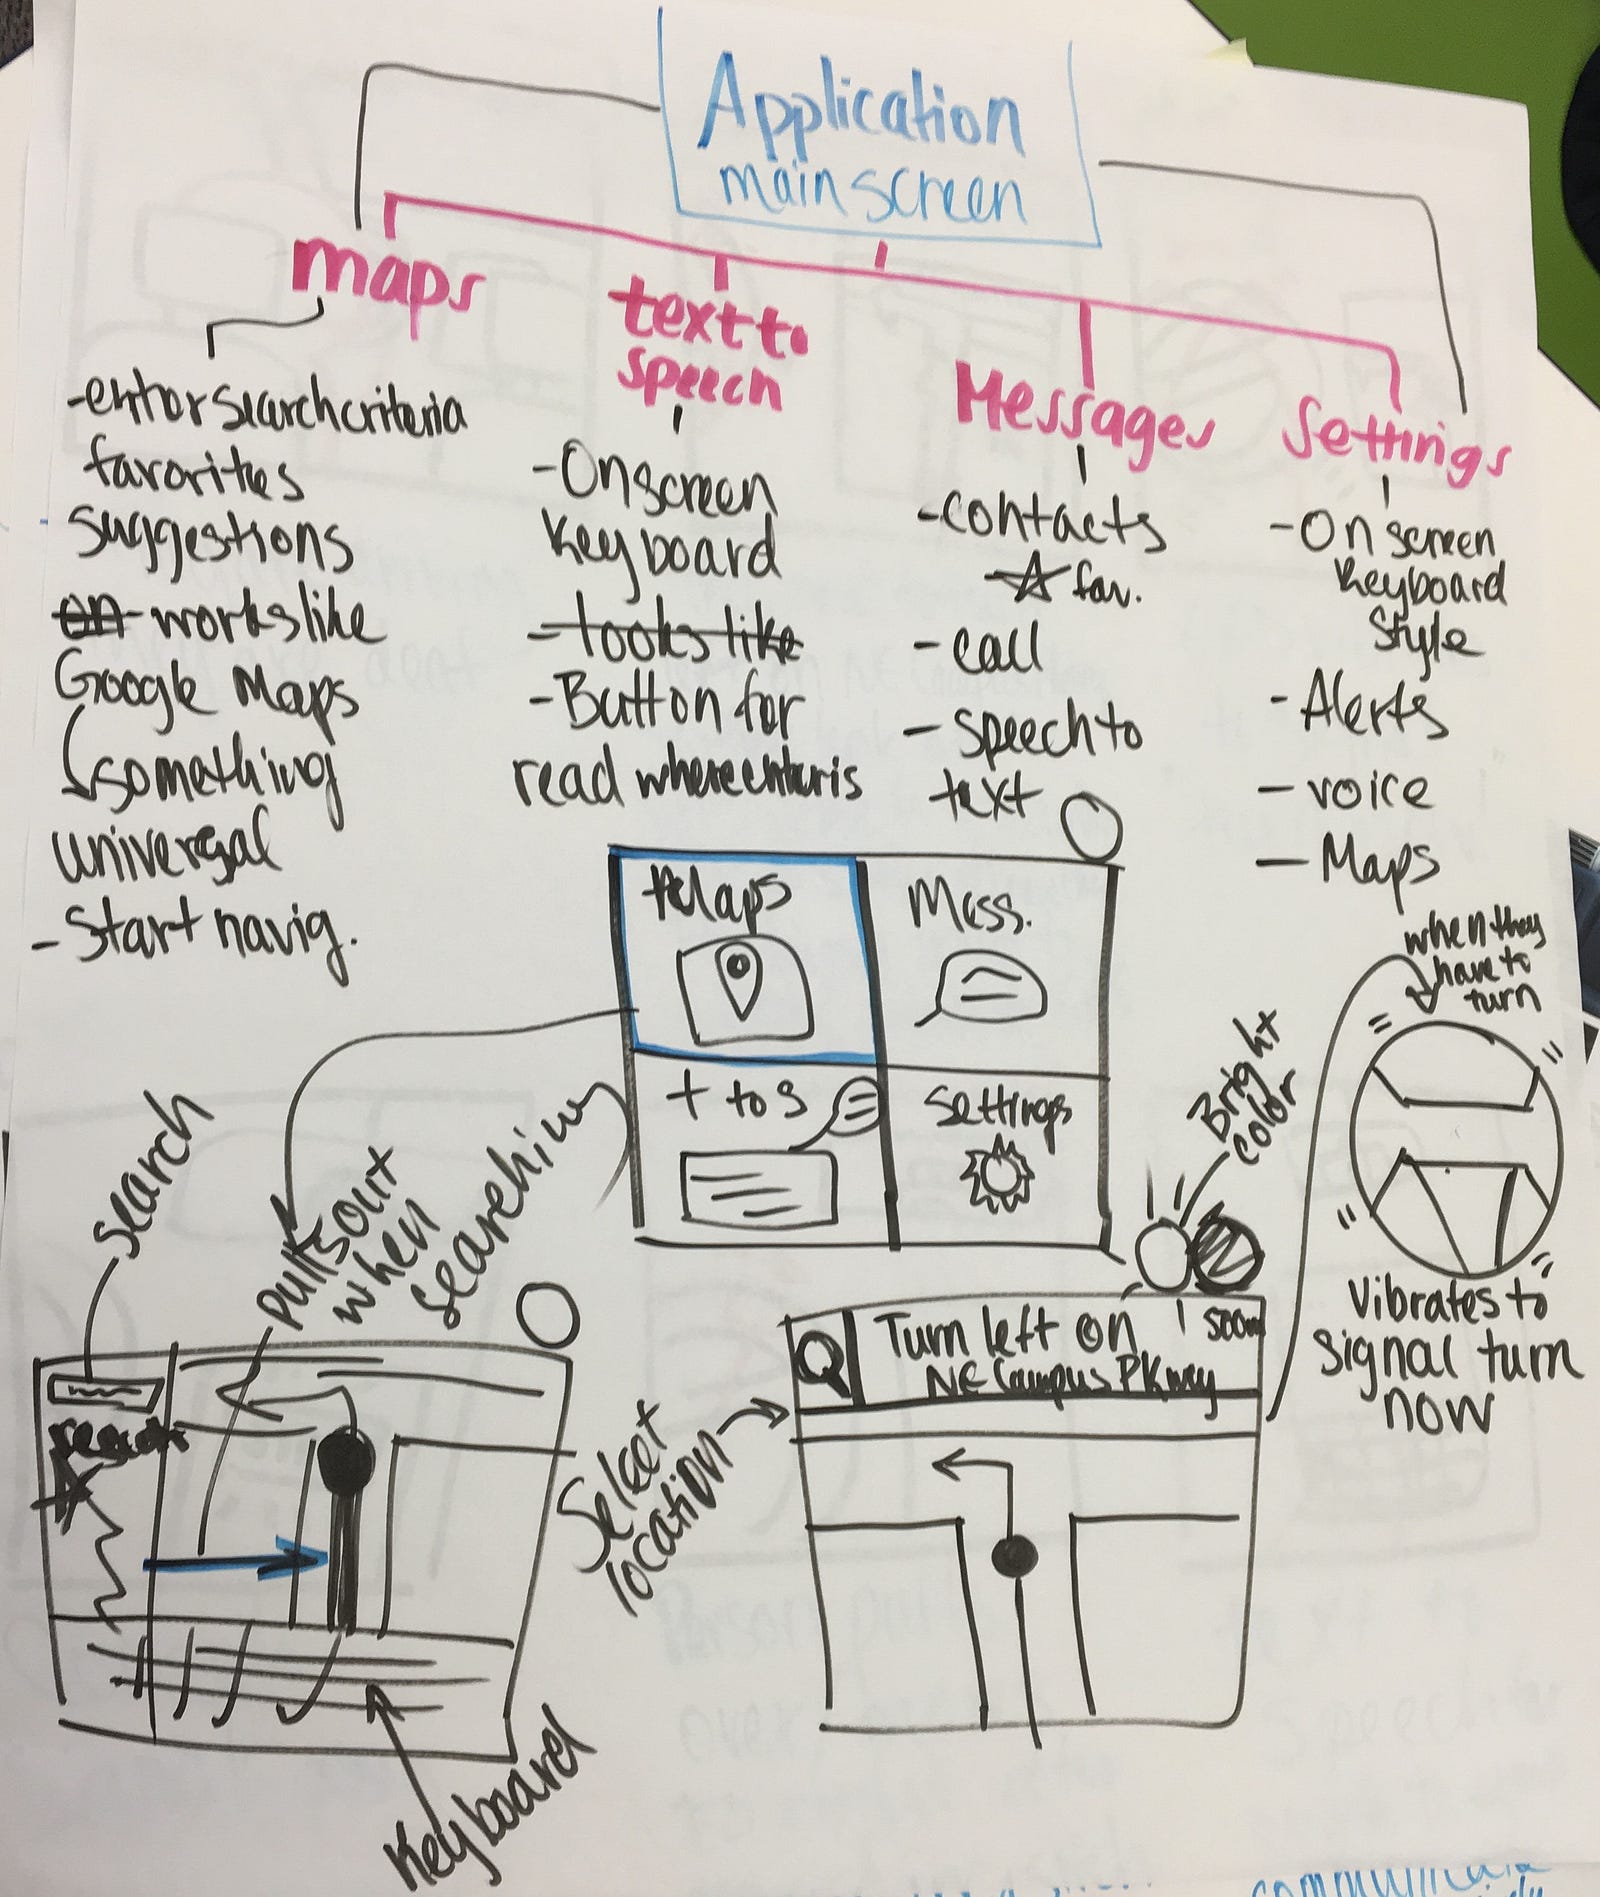 Application
main screen
maps
text to
speech
Messages
Settings
-enter search criteria
favorites
suggestions
on - works like
Google Maps
something
universal
- Start navig.
- Onscreen
Keyboard
- looks like
- Button for
read where enter is
- contacts
fav.
- call
- speech to
text
- On screen
Keyboard
Style
- Alerts
- voice
- Maps
Maps
Mess.
t to s
Settings
when they
have to
turn
Bright
color
Vibrates to
signal turn
now
search
pulls out
when
searching
search
Keyboard
Select
location
Turn left on
NE Campus PKwy
communicate